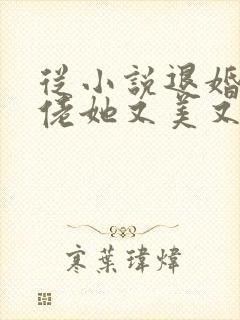 從小說退婚
佬她又美又
寒葉瑋煒